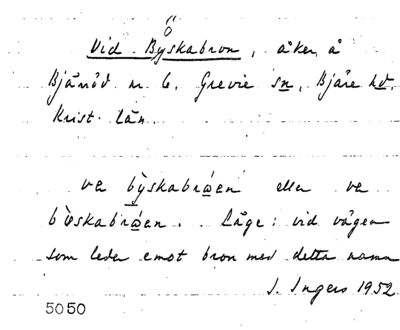 ö
Vid Byskabron, åker å
Bjäröd nr 6, Grevie sn, Bjäre hd.
Krist. län.
va bỳskabråen eller va
bỳeskabråen. Läge: vid vägen
som leder emot bron med detta namn
I. Ingers 1952
5050